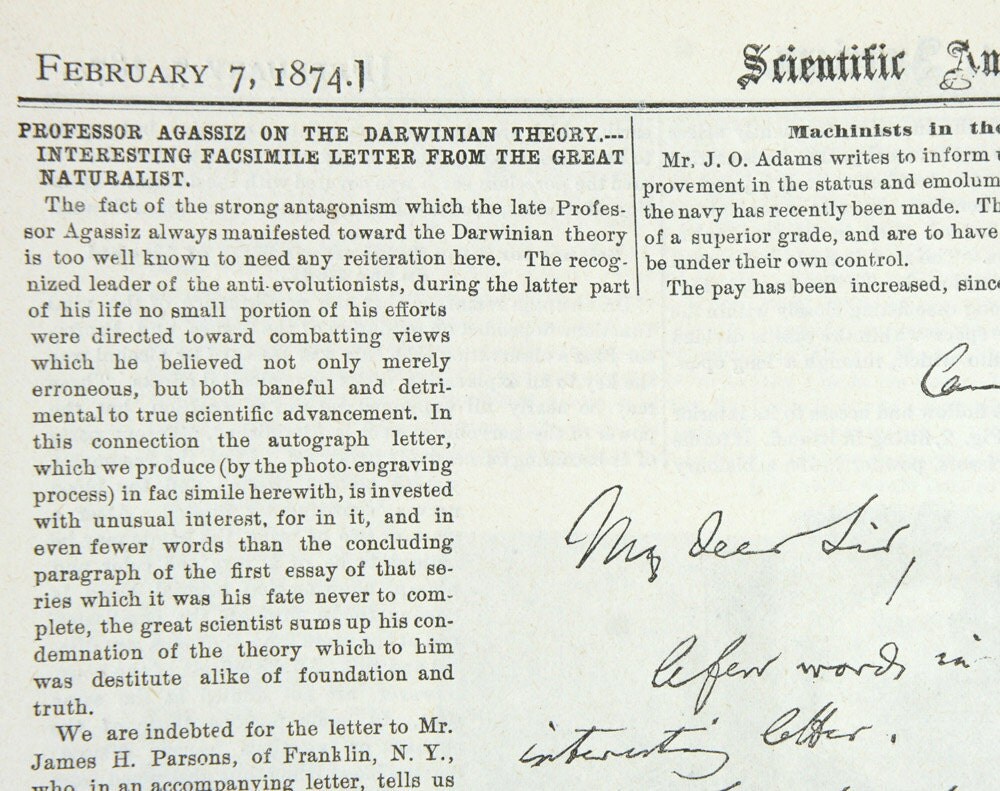 FEBRUARY 7, 1874.]
Scientific Am
PROFESSOR AGASSIZ ON THE DARWINIAN THEORY.---
INTERESTING FACSIMILE LETTER FROM THE GREAT
NATURALIST.
The fact of the strong antagonism which the late Profes-
sor Agassiz always manifested toward the Darwinian theory
is too well known to need any reiteration here. The recog-
nized leader of the anti-evolutionists, during the latter part
of his life no small portion of his efforts
were directed toward combatting views
which he believed not only merely
erroneous, but both baneful and detri-
mental to true scientific advancement. In
this connection the autograph letter,
which we produce (by the photo-engraving
process) in fac simile herewith, is invested
with unusual interest, for in it, and in
even fewer words than the concluding
paragraph of the first essay of that se-
ries which it was his fate never to com-
plete, the great scientist sums up his con-
demnation of the theory which to him
was destitute alike of foundation and
truth.
We are indebted for the letter to Mr.
James H. Parsons, of Franklin, N. Y.,
who, in an accompanying letter, tells us
Machinists in the
Mr. J. O. Adams writes to inform u
provement in the status and emolum
the navy has recently been made. Th
of a superior grade, and are to have
be under their own control.
The pay has been increased, since
Cam
My dear Sir,
A few words in
interesting letter.